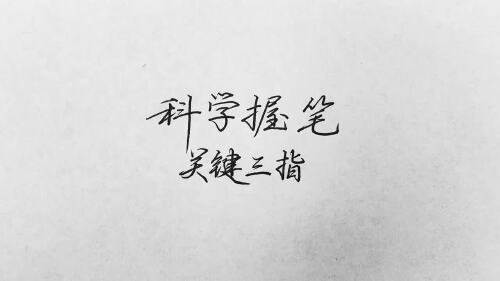 科学握笔
关键三指